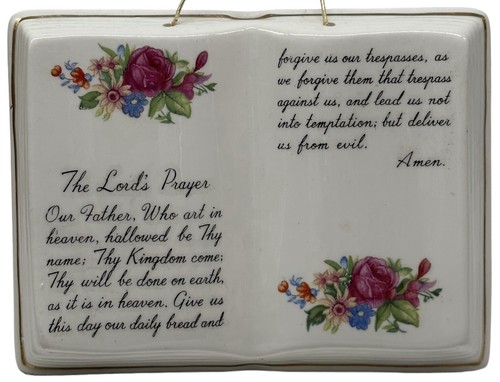 The Lord's Prayer
Our Father, Who art in
heaven, hallowed be Thy
name; Thy Kingdom come;
Thy will be done on earth,
as it is in heaven. Give us
this day our daily bread and
forgive us our trespasses, as
we forgive them that trespass
against us, and lead us not
into temptation; but deliver
us from evil.
Amen.